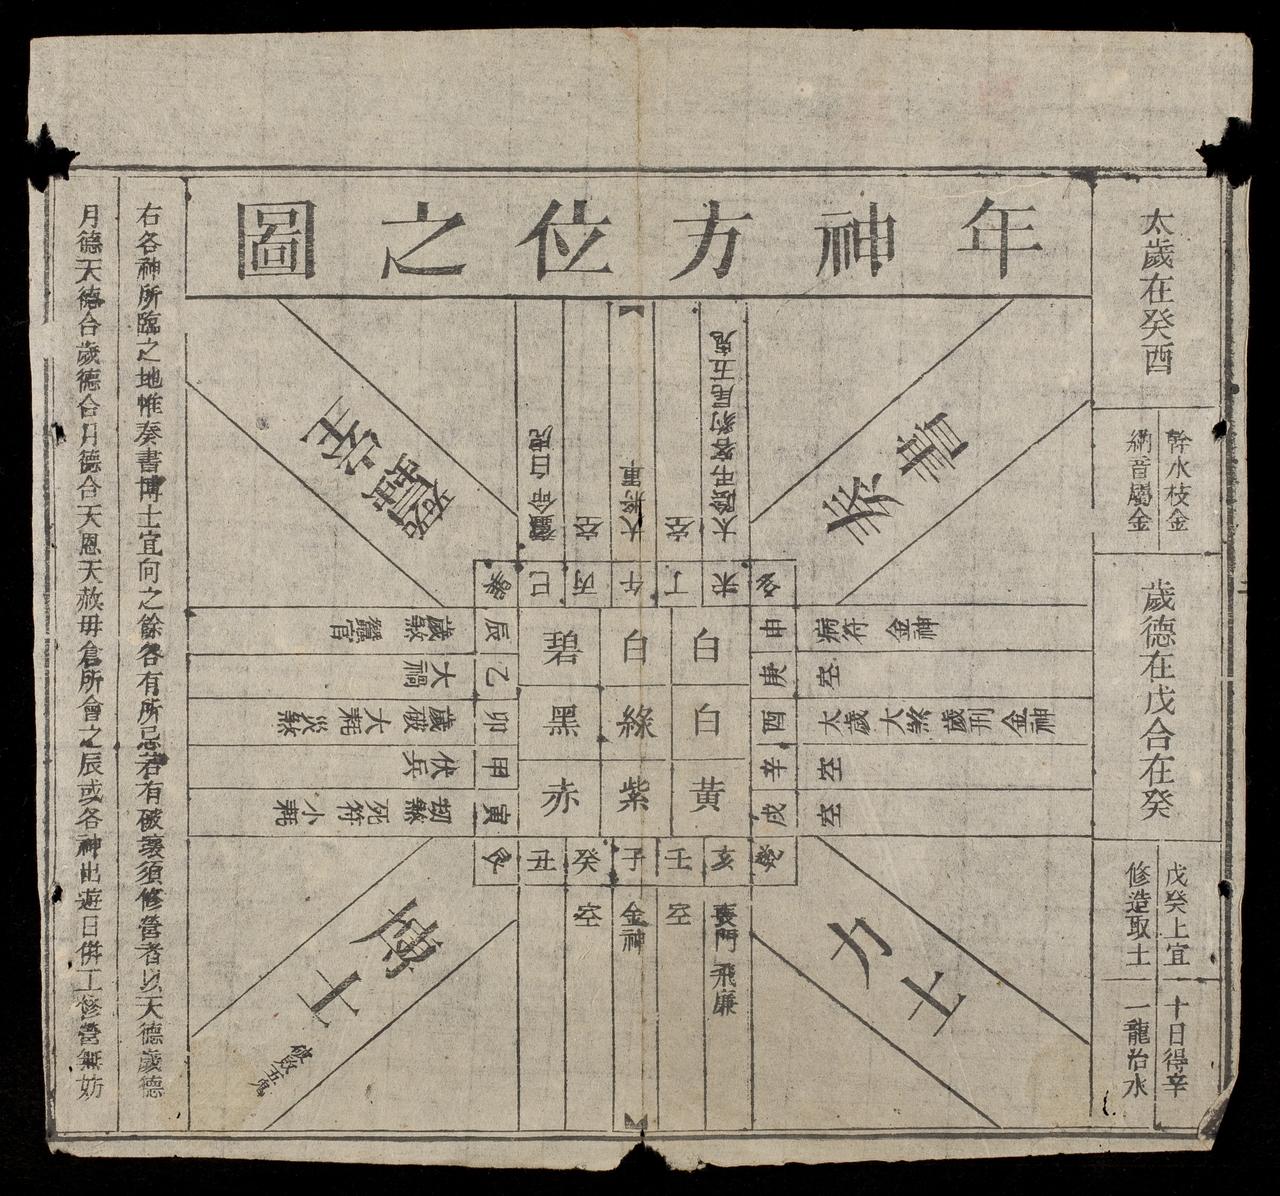 太歲在癸酉
幹水枝金
納音屬金
歲德在戊合在癸
戊癸上宜
修造取土
十日得辛
一龍治水
年神方位之圖
奏書
蠶室
太陰 弔客 豹尾 五鬼
空
大將軍
空
白虎
未
丁
午
丙
巳
巽
申
病符 金神
庚
空
酉
太歲 大煞 歲刑 金神
辛
空
戌
空
白
白
碧
白
綠
黑
黃
紫
赤
辰
歲煞
蠶官
乙
大禍
卯
歲破
大耗
災煞
甲
伏兵
寅
劫煞
死符
小耗
亥
壬
子
癸
丑
艮
喪門 飛廉
空
金神
空
力士
博士
右各神所臨之地惟奏書博士宜向之餘各有所忌若有破壞須修營者以天德歲德
月德天德合歲德合月德合天恩天赦毋倉所會之辰或各神出遊日併工修營無妨